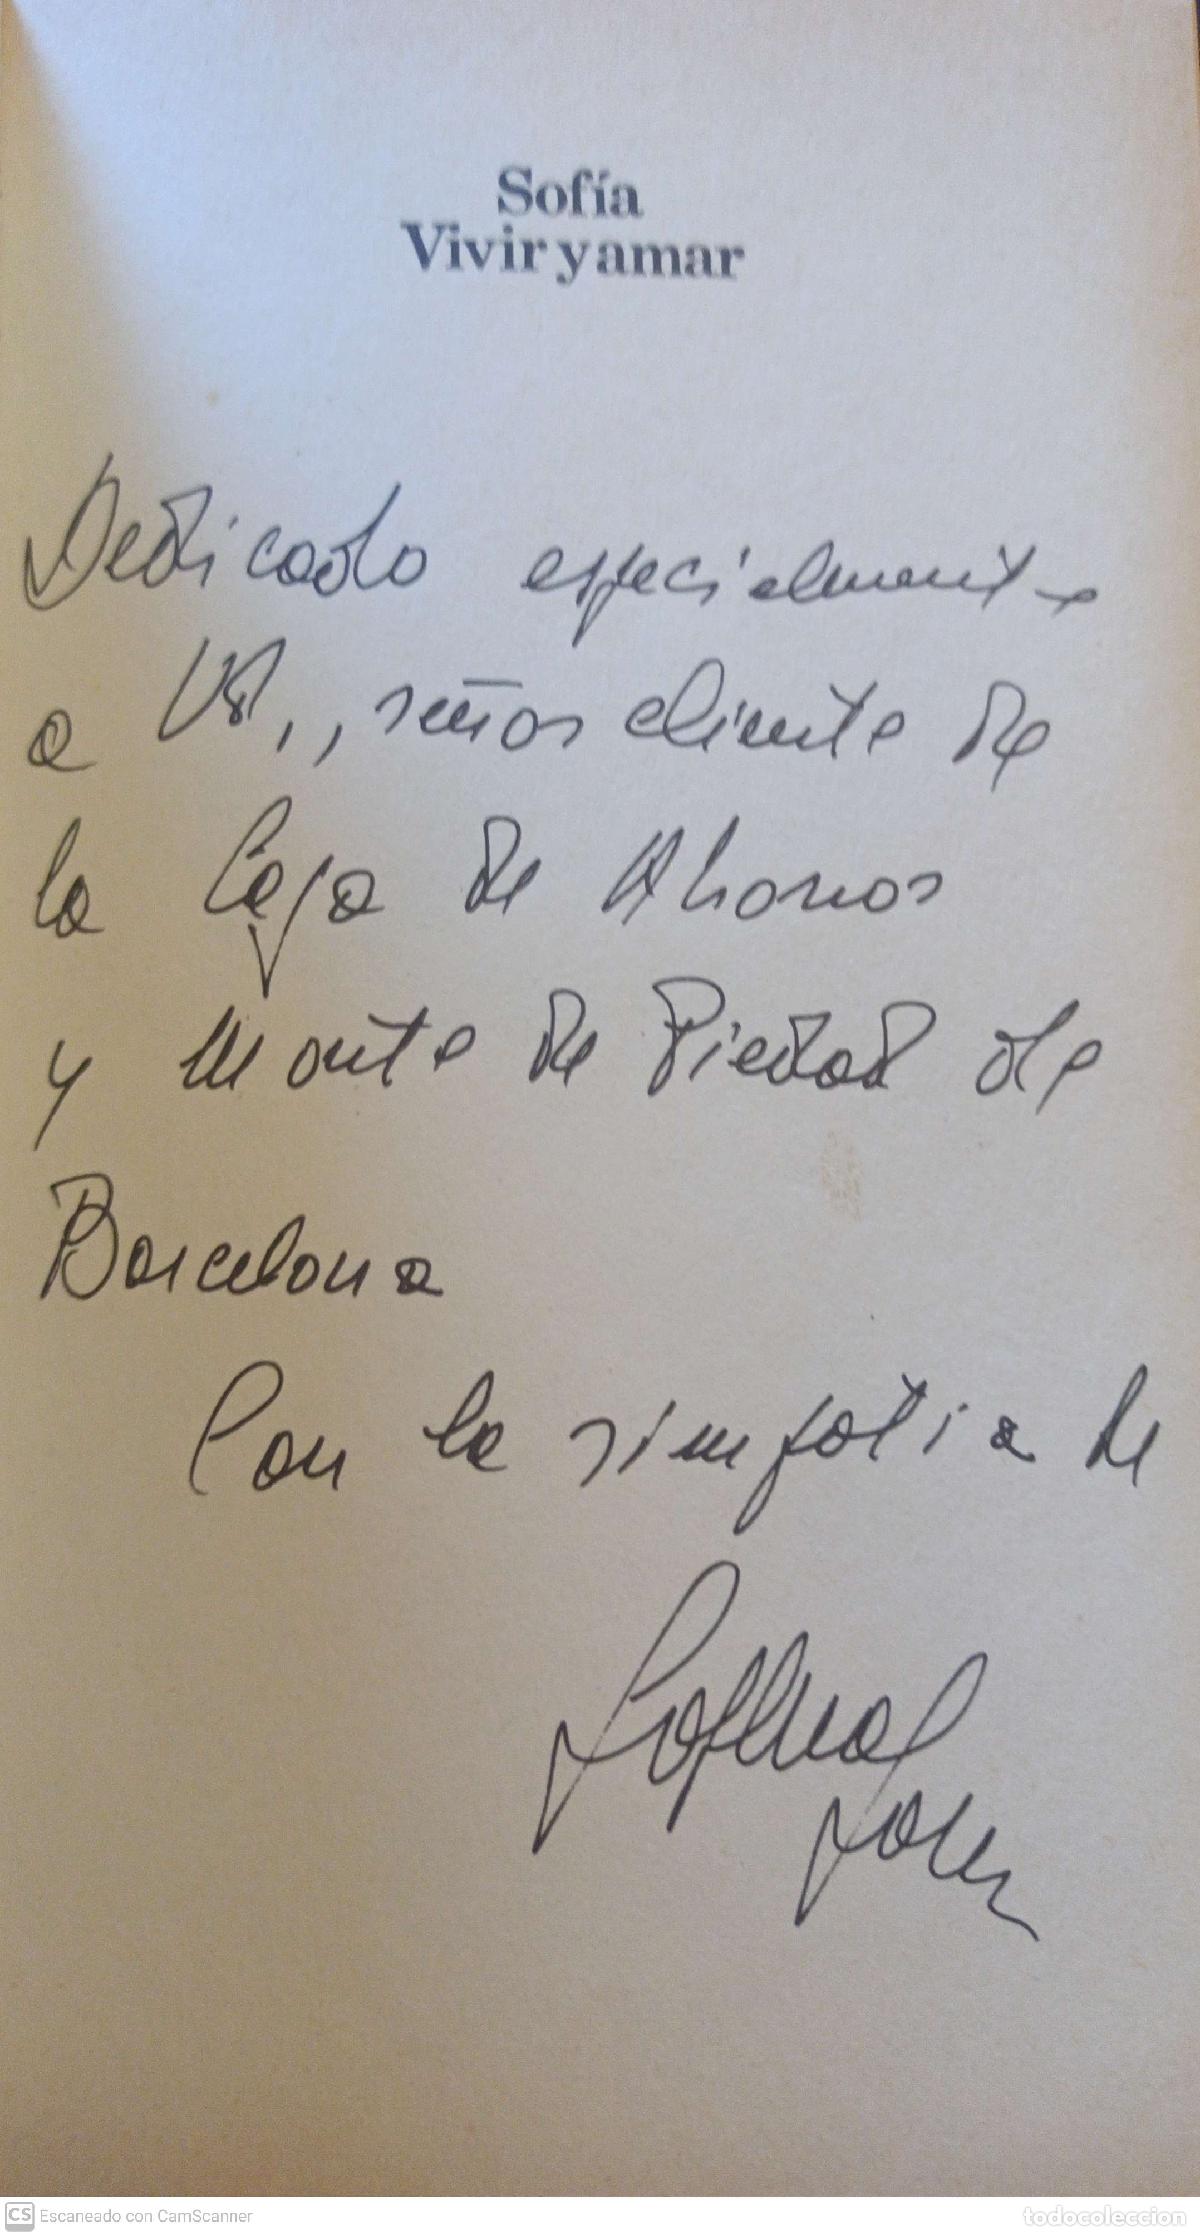 Sofía
Vivir y amar
Dedicado especialmente
a Vd., señor cliente de
la Caja de Ahorros
y Monte de Piedad de
Barcelona
Con la simpatia de
Sofía
CS Escaneado con CamScanner
todocoleccion